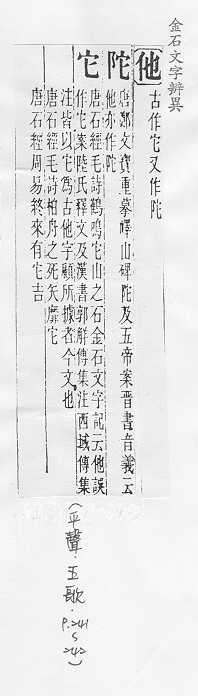 金石文字辨異
他 古作它又作陀
陀 唐鄭文寶重摹嶧山碑陀及五帝案晉書音義云
他亦作陀
它 唐石經毛詩鶴鳴它山之石金石文字記云他誤
作它案陸氏釋文及漢書郭解傳集注西域傳集
注皆以它爲古他字顧所據者今文也
唐石經毛詩柏舟之死矢靡它
唐石經周易終來有它吉
(平聲·五歌·P.241~242)